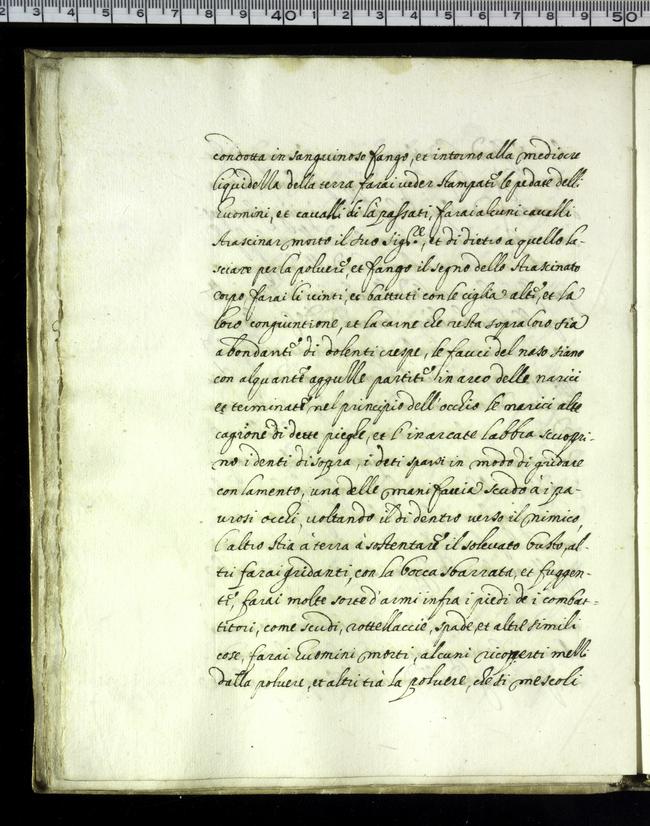 2 3 4 5 6 7 8 9 40 1 2 3 4 5 6 7 8 9 50
condotta in sanguinoso fango, et intorno alla mediocre
liquidella della terra farai veder stampati le pedate delli
huomini, et cavalli di la passati, farai alcuni cavalli
strascinar morto il suo Sig.re, et di dietro à quello la-
sciare per la polvere, et fango il segno dello strascinato
corpo farai li vinti, et battuti con le ciglia alte, et la
loro congiuntione, et la carne che resta sopra loro sia
abondante di dolenti crespe, le fauci del naso siano
con alquante partite in arco delle narici
et terminate nel principio dell'occhio le narici alte
cagione di dette pieghe, et l'inarcate labbia scuopri-
no i denti di sopra, i deti sparsi in modo di gridare
con lamento, una delle mani faccia scudo à i pa-
urosi occhi, voltando il di dentro verso il nimico,
l'altro stia à terra à sostentare il solevato busto, al-
tri farai gridanti, con la bocca sbarrata, et fuggen-
ti, farai molte sorte d'armi infra i piedi de i combat=
titori, come scudi, rottellaccie, spade, et altre simili
cose, farai huomini morti, alcuni ricoperti melli
dalla polvere, et altri trà la polvere, che si mescoli